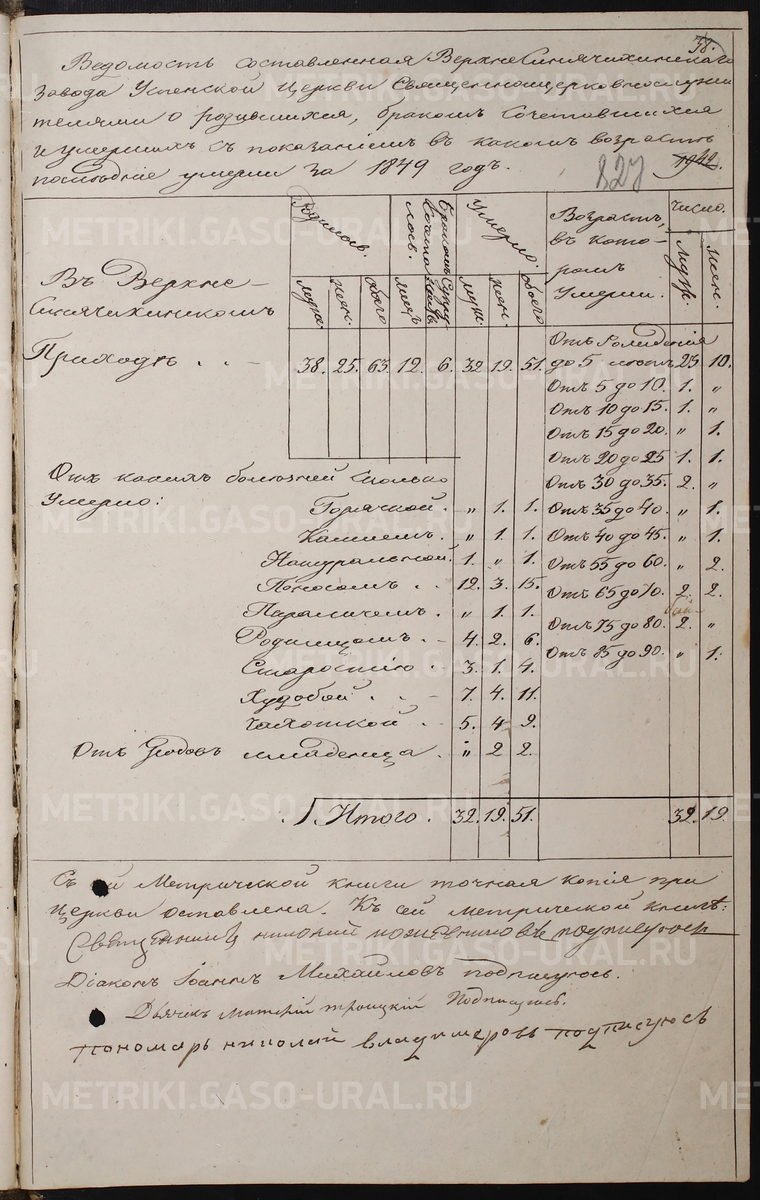 38.
Ведомость составленная Верхне Синячихинскаго
Завода Успенской Церкви Священноцерковнослужи
телями о родившихся, бракомъ Сочетавшихся
и умершихъ съ показаніемъ въ какомъ возрастѣ
послѣдніе умерли за 1849 годъ.
827
1942.
Родилось. Бракомъ Сочеталось. Умерло. Возрастъ, въ которомъ Умерли. Число.
муж. жен. обоего муж. жен. обоего муж. жен.
Въ Верхне-
Синячихинскомъ
Приходѣ . . 38. 25. 63. 12. 6. 32. 19. 51.
Отъ Рожденія
до 5 лѣтъ 23 10.
Отъ 5 до 10. 1. „
Отъ 10 до 15. 1. „
Отъ 15 до 20. „ 1.
Отъ 20 до 25 1. 1.
Отъ 30 до 35. 2. „
Отъ 35 до 40. „ 1.
Отъ 40 до 45. „ 1.
Отъ 55 до 60. „ 2.
Отъ 65 до 70. 2. 2.
Отъ 75 до 80. 2. „
Отъ 85 до 90. „ 1.
Отъ какихъ болѣзней Сколько
Умерло:
Горячкой. „ 1. 1.
Кашлемъ. „ 1. 1.
Натуральной. 1. „ 1.
Поносомъ . . 12. 3. 15.
Параличемъ. „ 1. 1.
Родимцомъ. 4. 2. 6.
Старостію . 3. 1. 4.
Худобой . . 7. 4. 11.
Чахоткой . 5. 4 9.
Отъ Родовъ младенца. „ 2 2.
Итого. 32. 19. 51. 32. 19
Съ й Метрической книги точная копія при
Церкви оставлена. Къ сей метрической книгѣ:
Священникъ подписуюсь
Діаконъ Іоаннъ Михайловъ подписуюсь.
Дьячекъ Троицкій Подписуюсь.
пономарь николай владимеровъ подписуюсь
METRIKI.GASO-URAL.RU